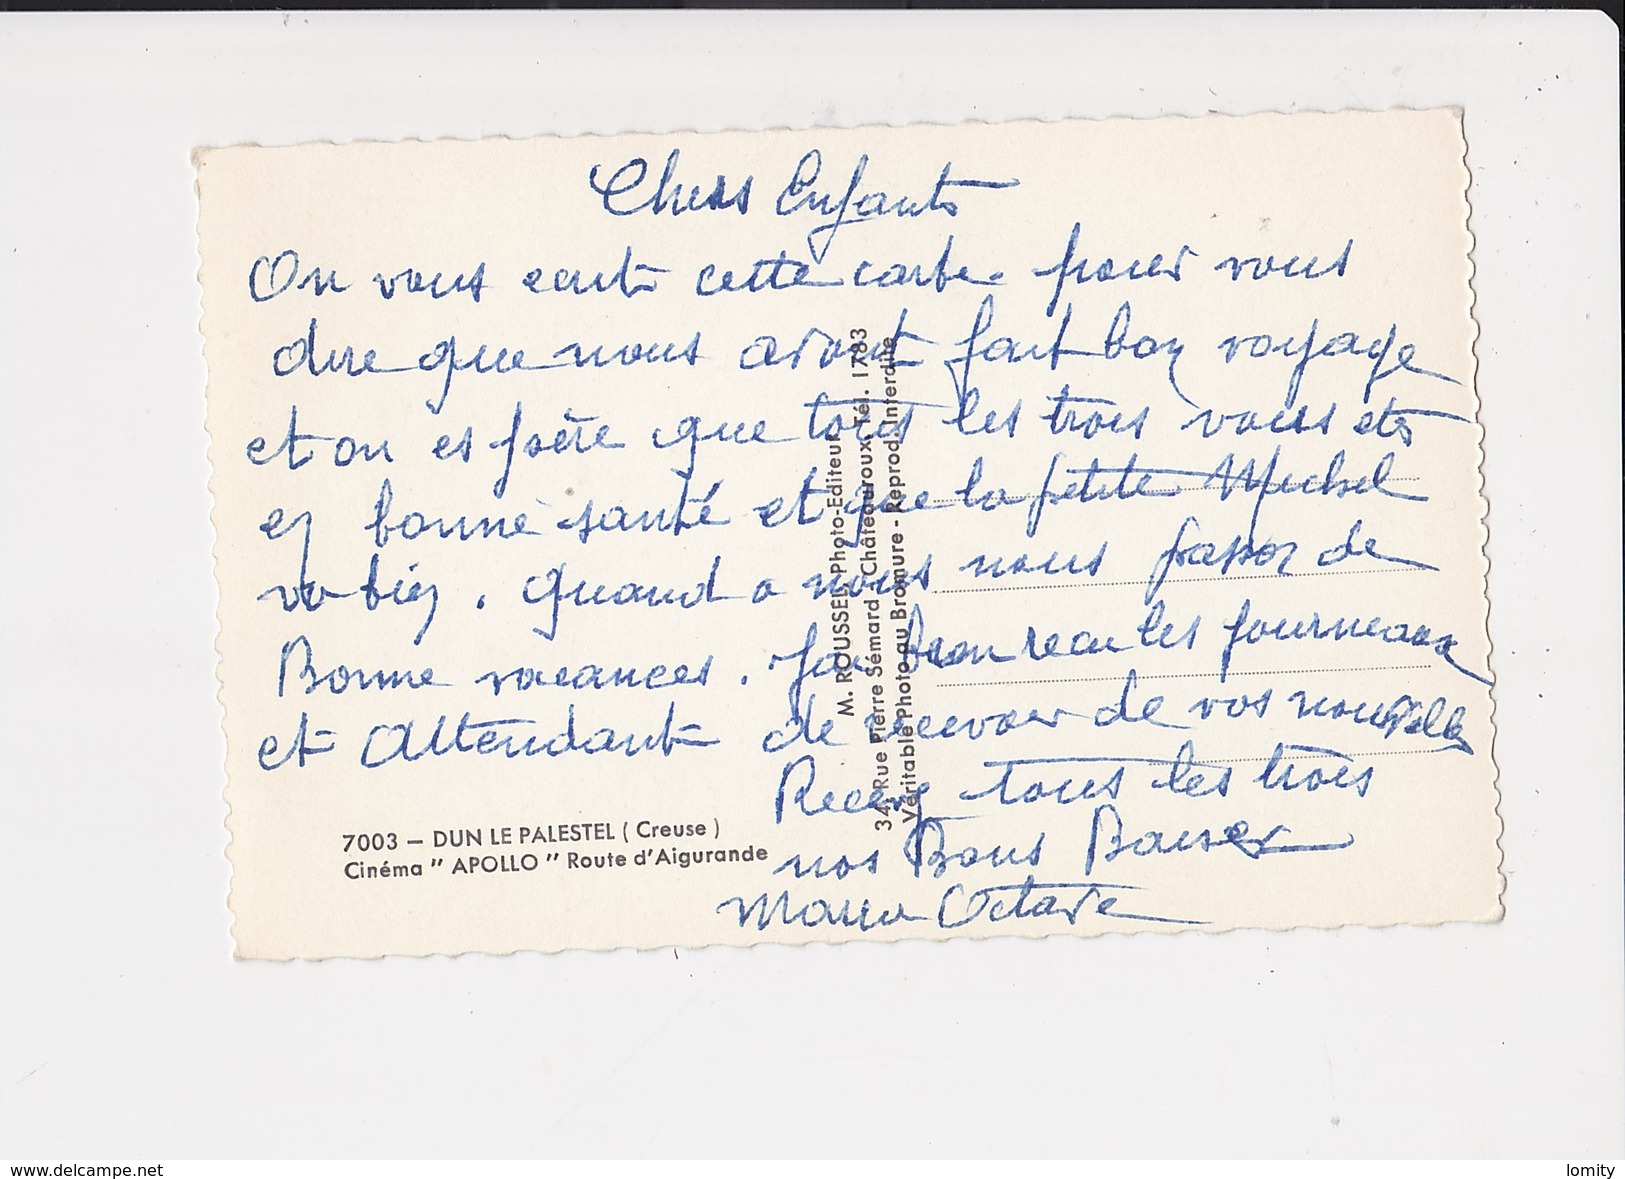 Chers Enfants
On vous ecrit cette carte pour vous
dire que nous avont fait bon voyage
et on espère que tous les trois vous ets
en bonne santé et que la petite Michel
va bien. Quand a nous nous passon de
Bonne vacances. J'ai bien recu les fourneaux
et Attendant de recevoir de vos nouvelles
Recevez tous les trois
nos Bons Baiser
Octave
7003 — DUN LE PALESTEL ( Creuse )
Cinéma " APOLLO " Route d'Aigurande
M. ROUSSEL, Photo-Editeur
34, Rue Pierre Sémard - Châteauroux Tél. 1783
Véritable Photo au Bromure - Reprod. Interdite
www.delcampe.net
lomity